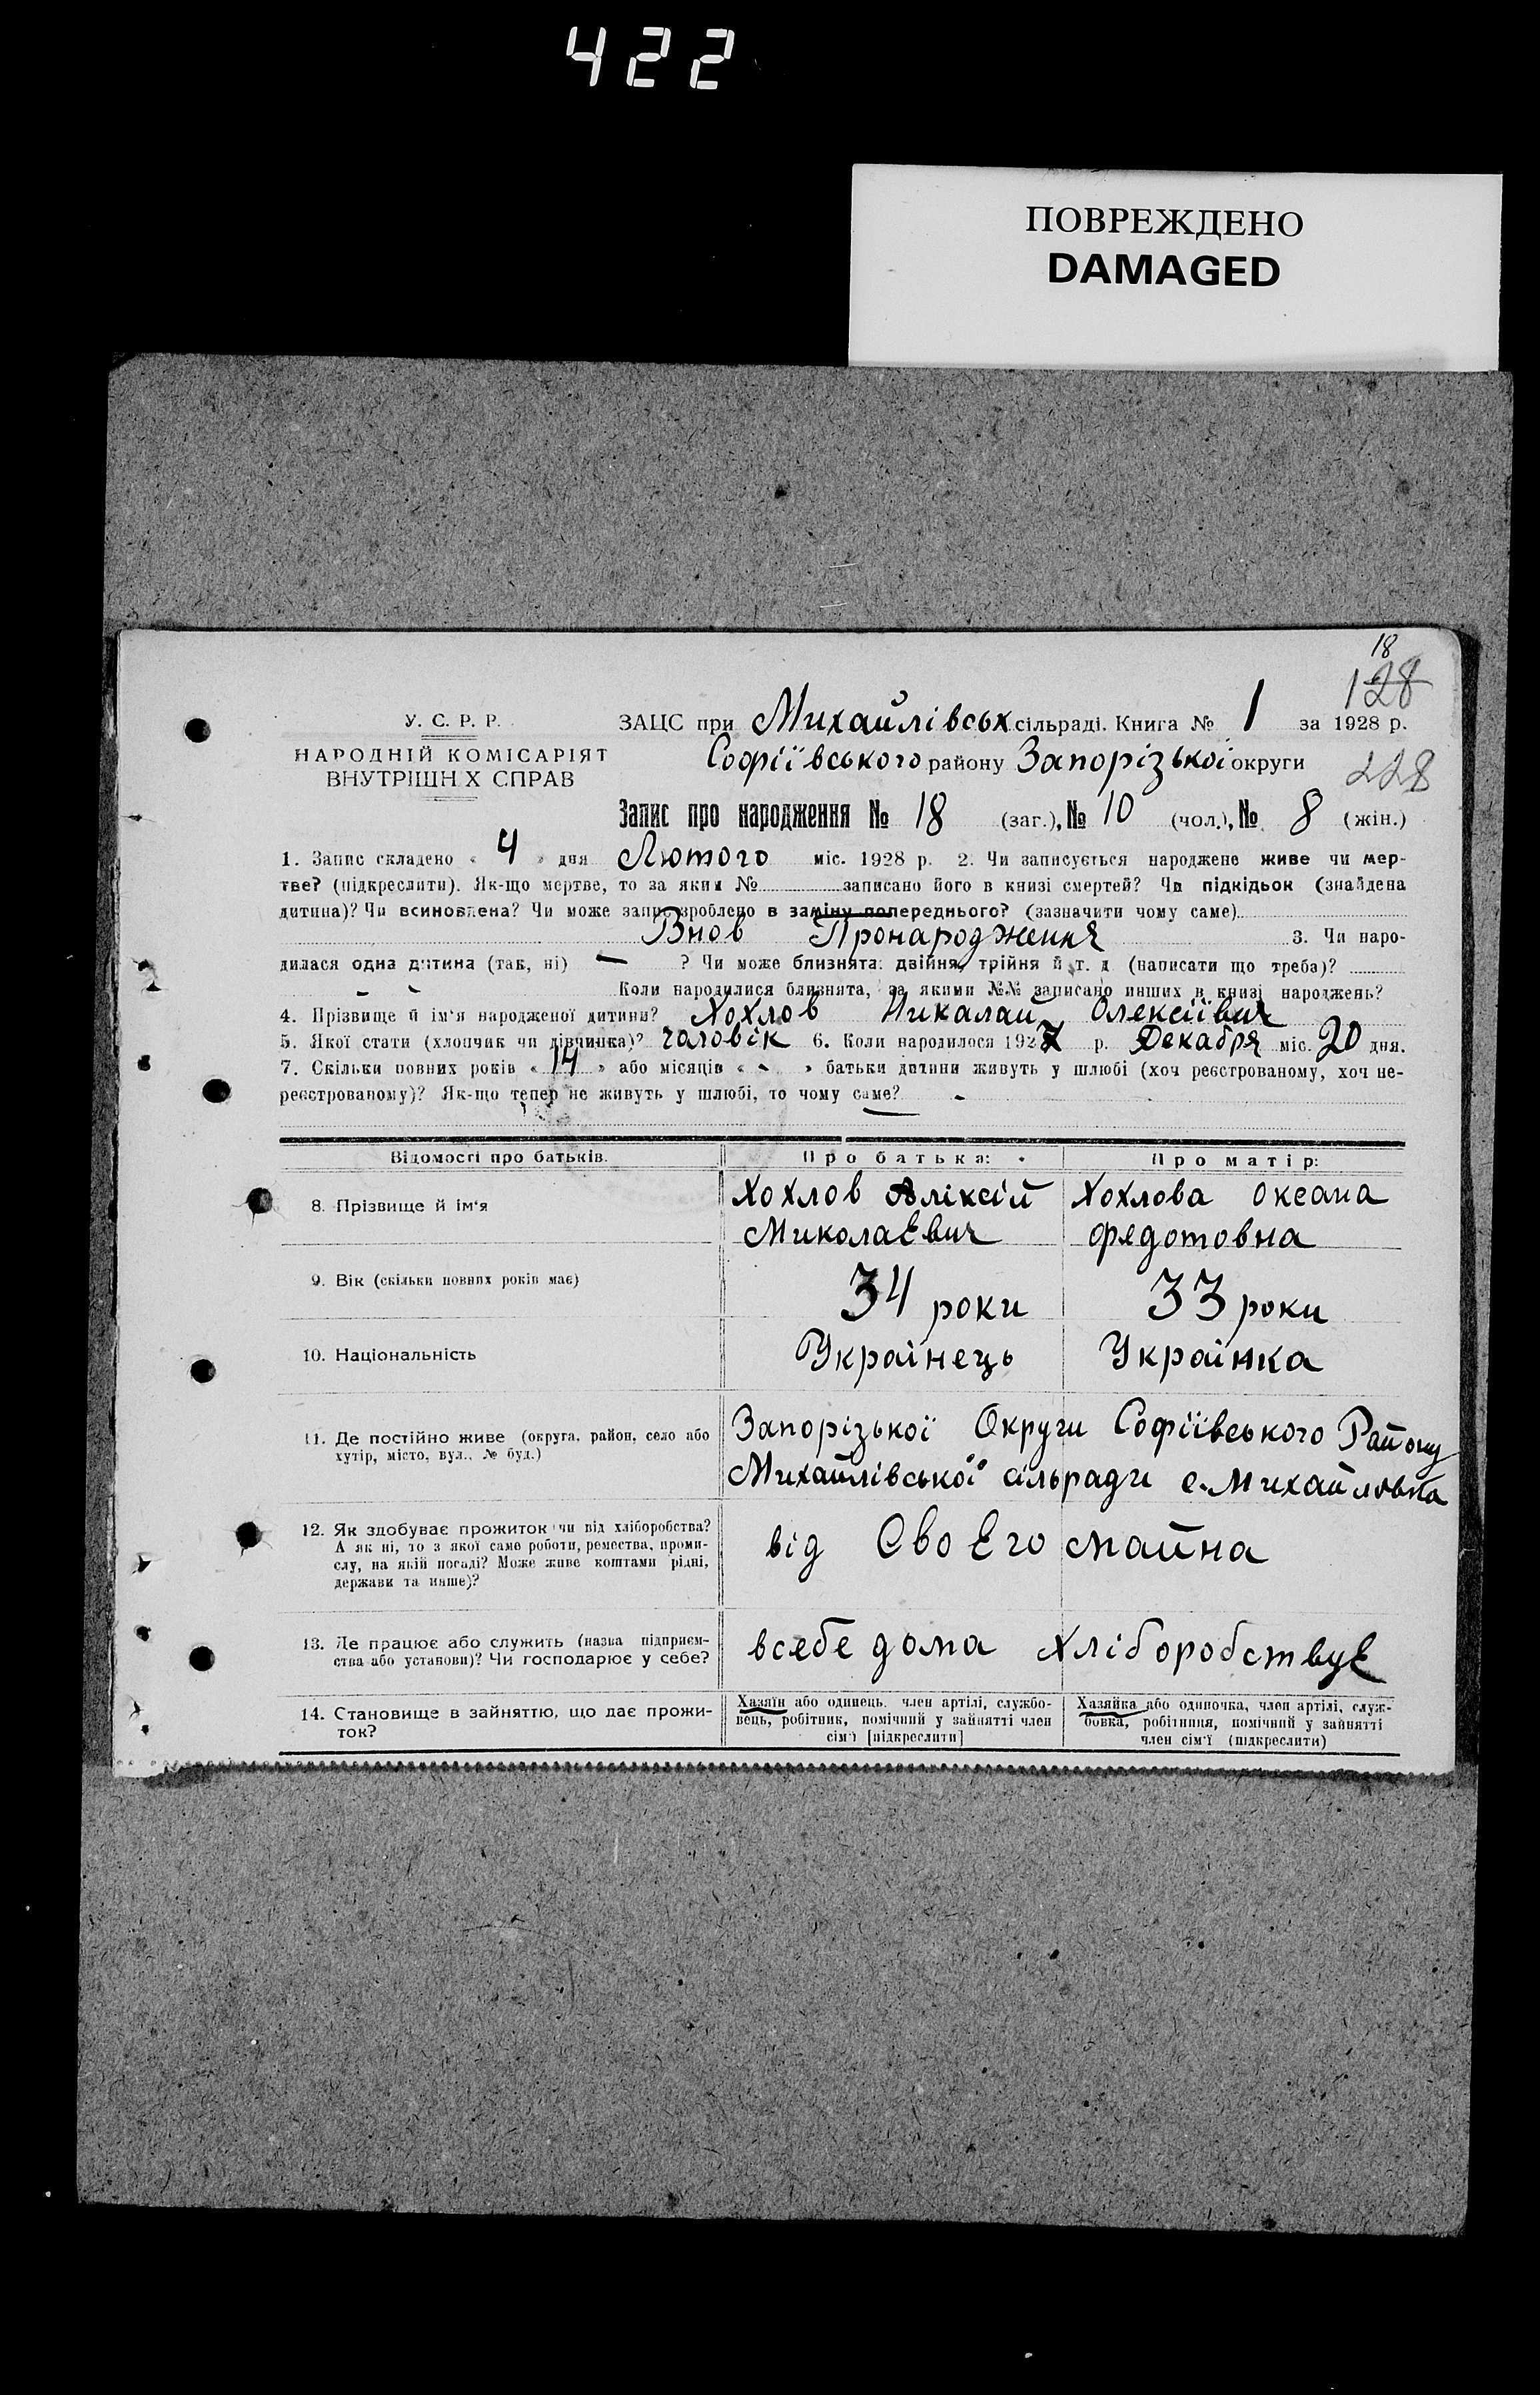 422
ПОВРЕЖДЕНО
DAMAGED
18
128
228
У. С. Р. Р.
НАРОДНІЙ КОМІСАРІЯТ
ВНУТРІШНІХ СПРАВ
ЗАЦС при Михайлівськ сільраді. Книга № 1 за 1928 р.
Софіївського району Запорізької округи
Запис про народження № 18 (заг.), № 10 (чол.), № 8 (жін.)
1. Запис складено « 4 » дня Лютого міс. 1928 р. 2. Чи записується народжене живе чи мер-
тве? (підкреслити). Як-що мертве, то за яким № записано його в книзі смертей? Чи підкідьок (знайдена
дитина)? Чи всиновлена? Чи може запис зроблено в заміну попереднього? (зазначити чому саме)
Внов Пронародження 3. Чи наро-
дилася одна дитина (так, ні) — ? Чи може близнята: двійня, трійня й т. д (написати що треба)?
- - Коли народилися близнята, за якими №№ записано инших в книзі народжень?
4. Прізвище й ім'я народженої дитини? Хохлов Никалай Олексіївич
5. Якої стати (хлопчик чи дівчинка)? чаловік 6. Коли народилося 1927 р. Декабря міс. 20 дня.
7. Скільки повних років « 14 » або місяців « - » батьки дитини живуть у шлюбі (хоч реєстрованому, хоч не-
реєстрованому)? Як-що тепер не живуть у шлюбі, то чому саме? -
Відомості про батьків. Про батька: Про матір:
8. Прізвище й ім'я
Хохлов Аліксій
Миколаєвич
Хохлова Оксана
Федотовна
9. Вік (скільки повних років має) 34 роки 33 роки
10. Національність Українець Українка
11. Де постійно живе (округа, район, село або
хутір, місто, вул., № буд.)
Запорізької Округи Софіївського Району
Михайлівської сільради с. Михайловка
12. Як здобуває прожиток чи від хліборобства?
А як ні, то з якої саме роботи, ремества, проми-
слу, на якій посаді? Може живе коштами рідні,
держави та инше)?
від Своєго майна
13. Де працює або служить (назва підприєм-
ства або установи)? Чи господарює у себе?
всебе дома хліборобствує
14. Становище в зайняттю, що дає прожи-
ток?
Хазяїн або одинець, член артілі, службо-
вець, робітник, помічний у зайнятті член
сім'ї [підкреслити]
Хазяйка або одиночка, член артілі, служ-
бовка, робітниця, помічний у зайнятті
член сім'ї (підкреслити)